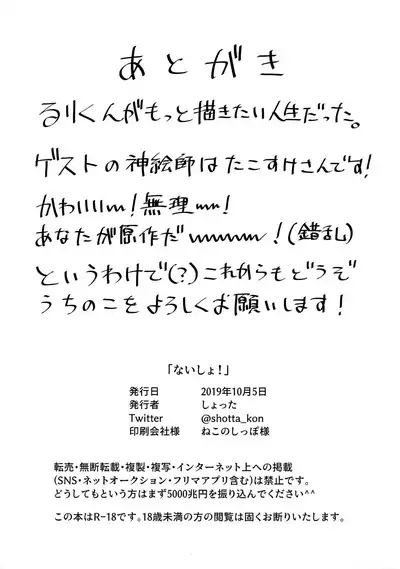 あとがき
るりくんがもっと描きたい人生だった。
ゲストの神絵師はたこすけさんです!
かわいいw!無理ww!
あなたが原作だwwwww!(錯乱)
というわけで(?)これからもどうぞ
うちのこをよろしくお願いします!
「ないしょ!」
発行日 2019年10月5日
発行者 しょった
Twitter @shotta_kon
印刷会社様 ねこのしっぽ様
転売・無断転載・複製・複写・インターネット上への掲載
(SNS・ネットオークション・フリマアプリ含む)は禁止です。
どうしてもという方はまず5000兆円を振り込んでください^^
この本はR-18です。18歳未満の方の閲覧は固くお断りいたします。